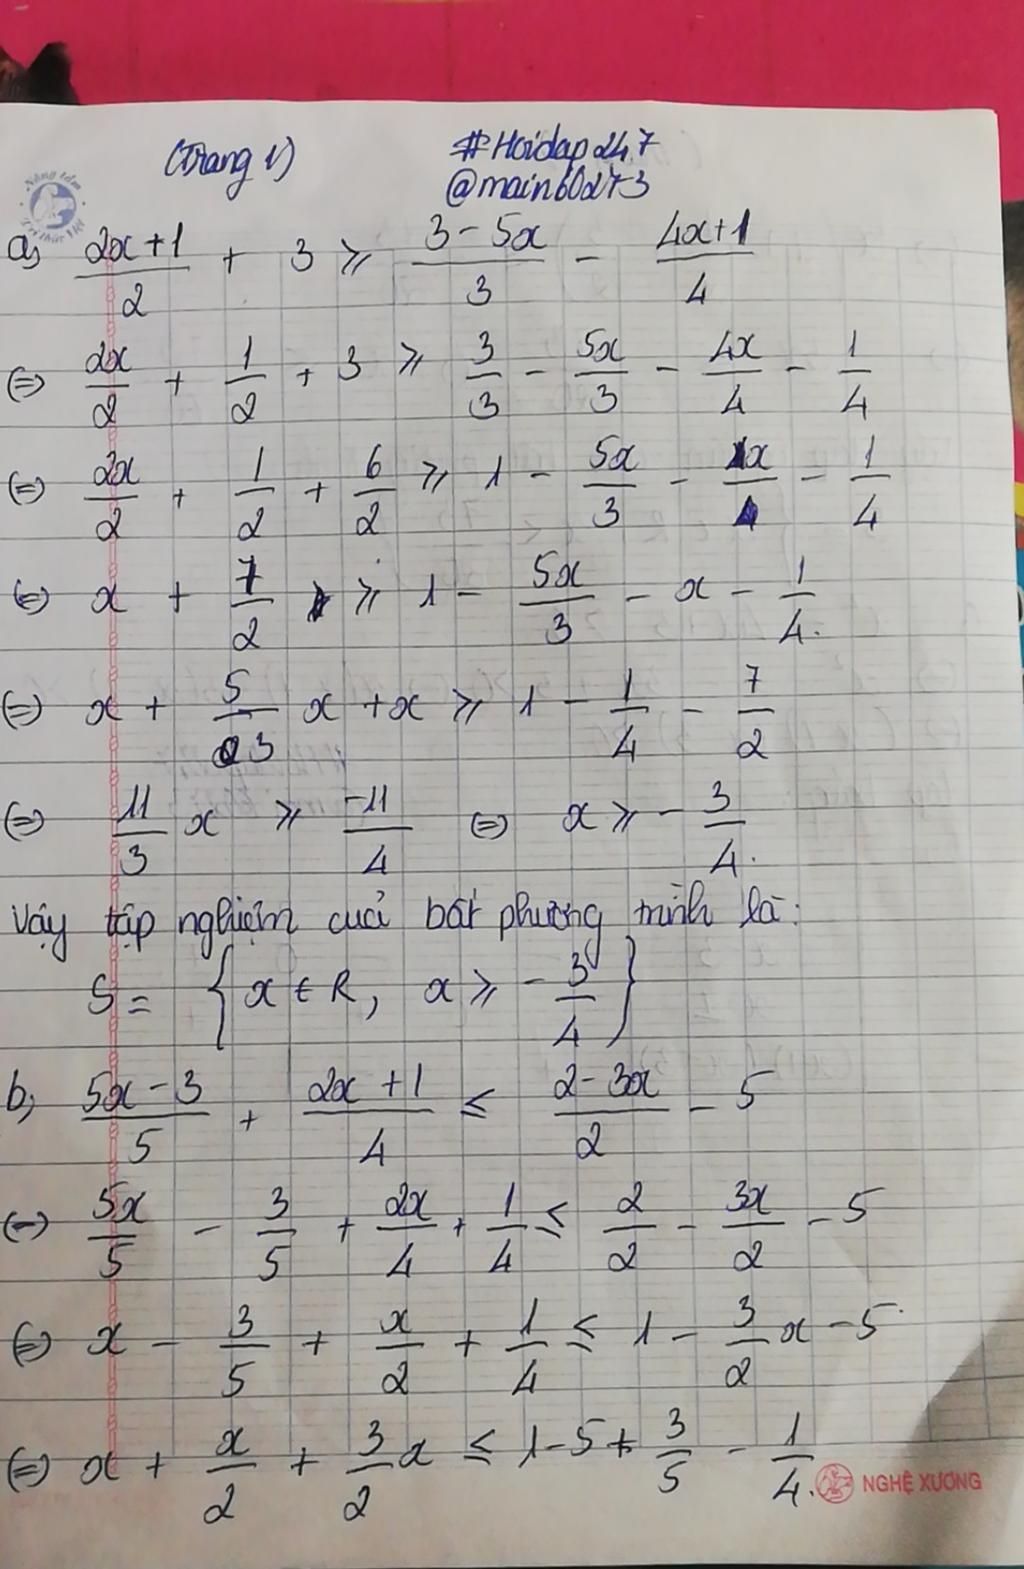 (Trang 1) #Hoidap247
@main60273
Nâng tầm
Trí thức Việt
a, (2x+1)/2 + 3 ≥ (3-5x)/3 - (4x+1)/4
(=) 2x/2 + 1/2 + 3 ≥ 3/3 - 5x/3 - 4x/4 - 1/4
(=) 2x/2 + 1/2 + 6/2 ≥ 1 - 5x/3 - 1x/1 - 1/4
(=) x + 7/2 ≥ 1 - 5x/3 - x - 1/4.
(=) x + 5/3 x + x ≥ 1 - 1/4 - 7/2
(=) 11/3 x ≥ -11/4 (=) x ≥ - 3/4.
Vậy tập nghiệm cuả bất phương trình là:
S = { x ∈ R, x ≥ - 3/4 }
b, (5x-3)/5 + (2x+1)/4 ≤ (2-3x)/2 - 5
(=) 5x/5 - 3/5 + 2x/4 + 1/4 ≤ 2/2 - 3x/2 - 5
(=) x - 3/5 + x/2 + 1/4 ≤ 1 - 3/2 x - 5
(=) x + x/2 + 3/2 x ≤ 1 - 5 + 3/5 - 1/4.
NGHỆ XƯƠNG